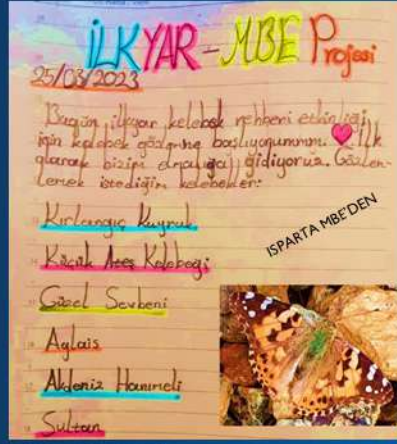 İLKYAR-MBE Projesi
25/03/2023
Bugün ilkyar kelebek rehberi etkinliği
için kelebek gözlemine başlıyorummm. İlk
olarak bizim elmalığa gidiyoruz. Gözlem-
lemek istediğim kelebekler:
Kırlangıç Kuyruk
ISPARTA MBE'DEN
Küçük Ateş Kelebeği
Güzel Sevbeni
Aglais
Akdeniz Hanımeli
Sultan